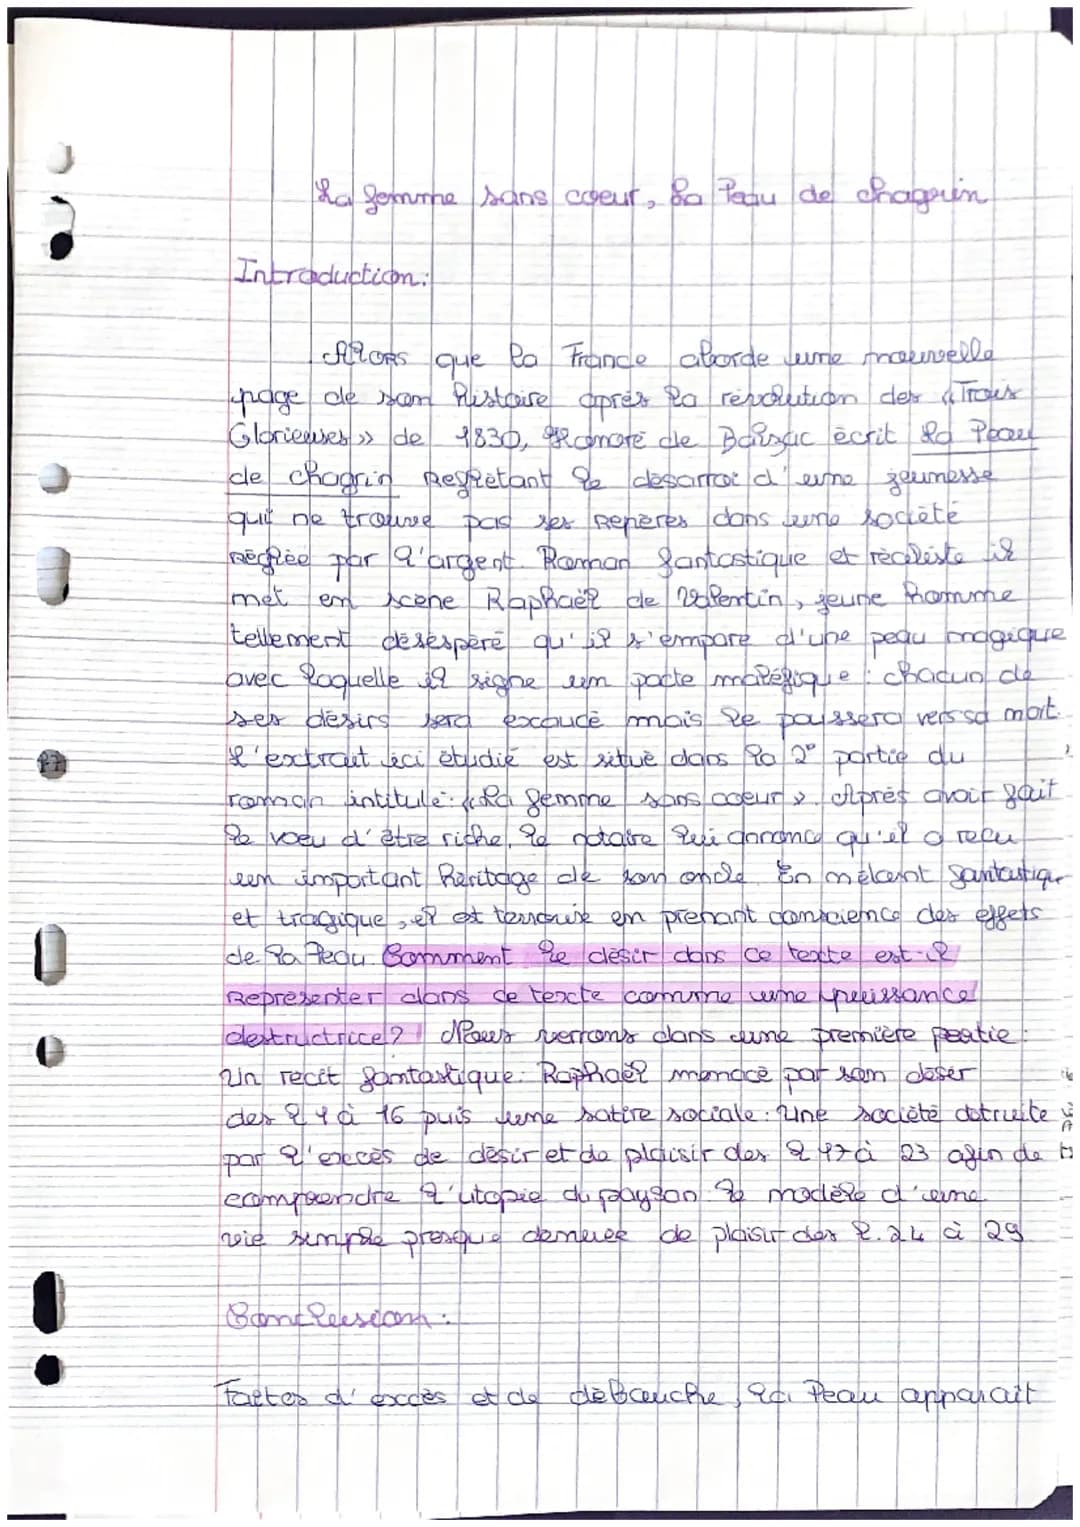 La femme sans coeur, La Peau de chagrin
Introduction:
Alors que la France aborde une nouvelle
page de son histoire après la révolution des « Trois
Glorieuses » de 1830, Honoré de Balzac écrit La Peau
de chagrin reflétant le désarroi d'une jeunesse
qui ne trouve pas ses repères dans une société
réglée par l'argent. Roman fantastique et réaliste il
met en scène Raphaël de Valentin, jeune homme
tellement désespéré qu'il s'empare d'une peau magique
avec laquelle il signe un pacte maléfique : chacun de
ses désirs sera exaucé mais le poussera vers sa mort.
L'extrait ici étudié est situé dans la 2° partie du
roman intitulé: « La femme sans coeur ». Après avoir fait
le voeu d'être riche, le notaire lui annonce qu'il a reçu
un important héritage de son oncle. En mêlant fantastique
et tragique, il est terrorisé en prenant conscience des effets
de la Peau. Comment le désir dans ce texte est-il
représenter dans ce texte comme une puissance
destructrice? Nous verrons dans une première peatie :
Un récit fantastique: Raphaël menacé par son déser
des l 1 à 16 puis une satire sociale: Une société détruite
par l'excès de désir et de plaisir des l 17 à 23 afin de
comprendre l'utopie du paysan le modèle d'une
vie simple presque demuée de plaisir des l. 24 à 29
Conclusion :
Faites d'excès et de débauche, la Peau apparait